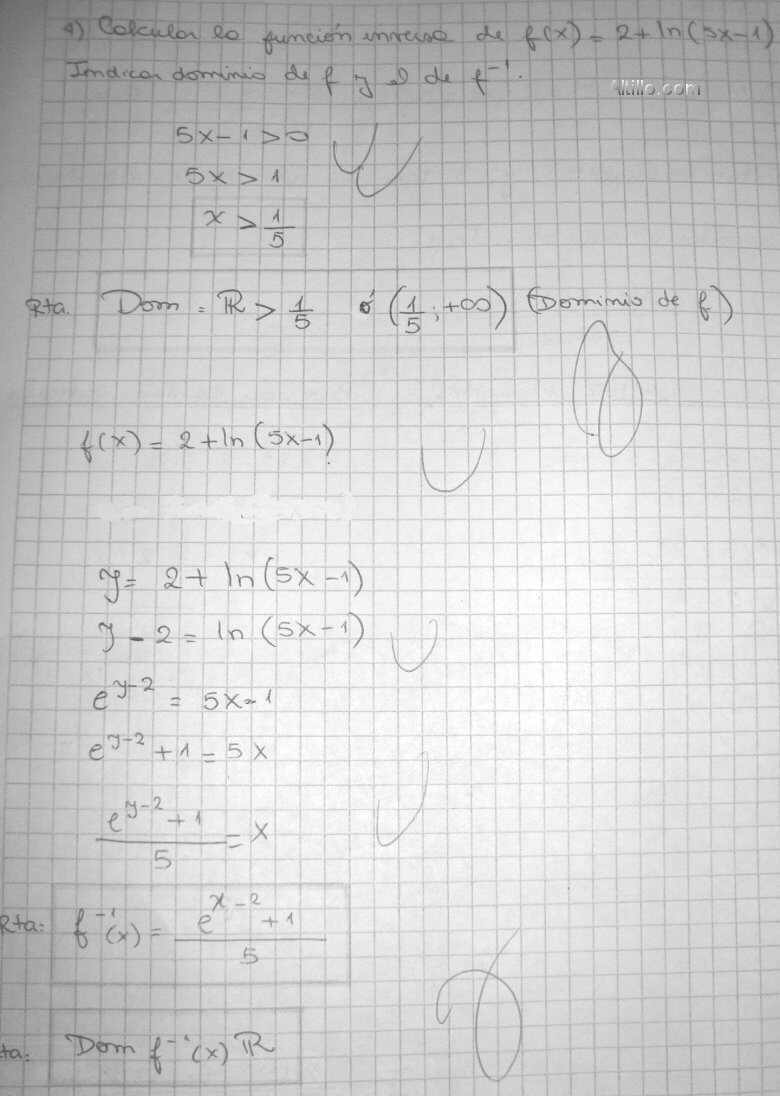 4) Calcular la función inversa de f(x) = 2 + ln(5x-1)
Indicar dominio de f y de f⁻¹.
Altillo.com
5x - 1 > 0
5x > 1
x > 1/5
Rta. Dom = ℝ > 1/5 ó (1/5 ; +∞) (Dominio de f)
f(x) = 2 + ln(5x-1)
y = 2 + ln(5x-1)
y - 2 = ln(5x-1)
e^(y-2) = 5x-1
e^(y-2) + 1 = 5x
(e^(y-2) + 1)/5 = x
Rta: f⁻¹(x) = (e^(x-2) + 1)/5
ta: Dom f⁻¹(x) ℝ